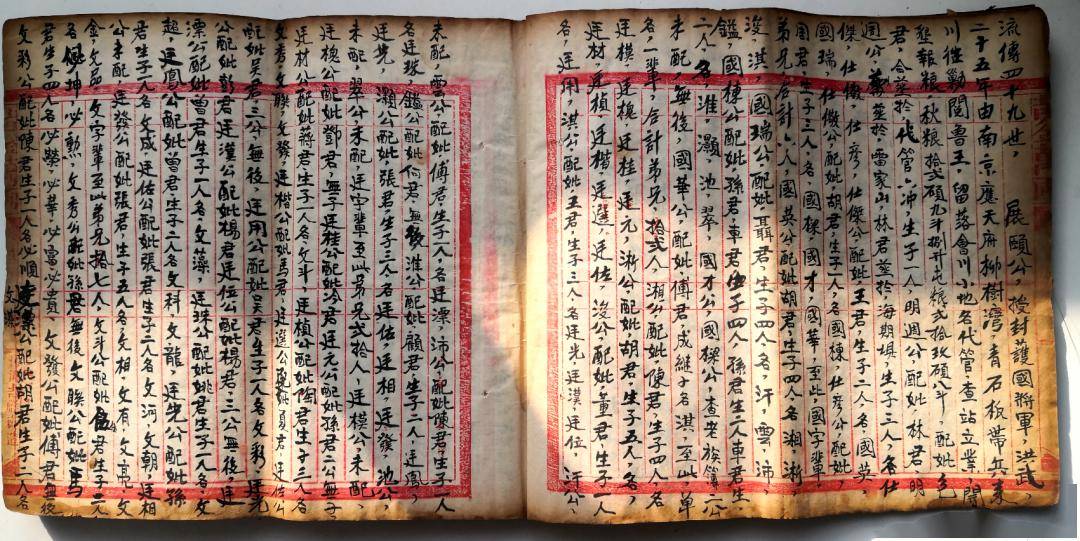 流傳四十九世，展頤公，授封護國將軍，洪武，
二十五年由南京應天府柳樹灣，青石板帶兵來
川征勦閣魯王，留落會川小地名代管，查站立業，開
墾報粮，秋粮拾弍碩九斗捌升屯粮弍拾玖碩八斗，配妣
君，仝塟於代管六冲，生子一人明週公配妣，林君，明
週公，塟於，雷家山林君塟於，海期垻，生子三人，名仕
傑，仕儆，仕彥，仕傑公配妣，王君，生子二人，名國英，
國瑞，仕儆公，配妣，胡君生子一人，名國棟，仕彥公配妣，
周君，生子三人，名國樑，國才，國華，至此，國字輩，
弟兄后計六人，國英公配妣胡君，生子四人名湘，淅，
浚，淇，國瑞公配妣聶君，生子四人名，汗，雲，沛，
鎰，國棟公配妣，孫君，車君，生子四人，孫君生二人車君生，
二人，名，淮，灝，池，翠，國才公，國樑公，查老族簿二公
未配，無後，國華公，配妣，傅君，成繼子名淇，至此，單
名一輩，后計弟兄，拾弍人，湘公，配妣，陳君，生子四人名
廷模，廷槐，廷桂，廷元，淅公配妣，胡君，生子五人，名，
廷材，廷楨，廷楷，廷選，廷佐，浚公，配妣，董君，生子一人
名，廷用，淇公，配妣，王君，生子三人名，廷光，廷位，汗公，
未配，雲公配妣，傅君，生子一人名，廷漂，沛公，配妣，陳君，生子一人，
名廷珠，鎰公，配妣，何君，無後，淮公，配妣，顧君，生子二人，廷鳳，
廷先，灝公，配妣，張君，生子三人，名，廷佑，廷相，廷發，池公，
未配，翠公，未配，廷字輩，至此，弟兄弍拾人，廷模公，未配
廷槐公，配妣，鄧君，無子，廷桂公，配妣，冷君，廷元公，配妣孫君，二公無子，
廷材公，配妣，蔣君，生子一人名，文斗，廷楨公，配妣，陶君，生子三人名，
文秀，文聯，文發，廷楷公，配妣，馬君，廷選公，配妣，夏君，廷佐公
配妣，吳君，三公無後，廷用公，配妣，吳君，生子一人名，文彩，廷光
公配妣，彭君，廷漢公，配妣，楊君，廷位公，配妣，楊君，三公無後，廷
漂公，配妣，曾君，生子一人名，文藻，廷珠公，配妣，姚君，生子一人名，文
超，廷鳳公，配妣，曾君，生子二人名，文科，文龍，廷先公，配妣，孫
君，生子一人名，文成，廷佑公，配妣，張君，生子二人名，文河，文朝，廷相
公，未配，廷發公，配妣，張君，生子五人名，文相，文有，文亮，文
金，文品，文字輩，至此，弟兄拾七人，文斗公，配妣，君，生子二人
名，必坤，必勲，文秀公，配妣，孫君，無後，文聯公，配妣，馬
君，生子四人名，必榮，必華，必富，必貴，文發公，配妣，傅君，無後
文彩，公配妣，陳君，生子一人名，必順，文藻公，配妣，胡君，生子二人名